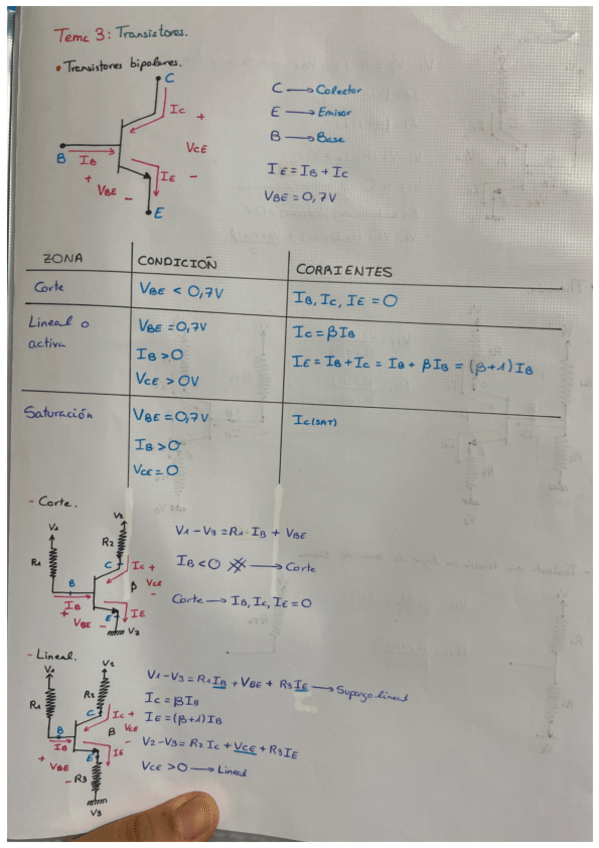 Tema 3: Transistores.
• Transistores bipolares.
C
Ic
+
VCE
B
IB
IE
-
+ VBE -
E
C → Colector
E → Emisor
B → Base
IE = IB + Ic
VBE = 0,7V
ZONA CONDICIÓN CORRIENTES
Corte VBE < 0,7V IB, Ic, IE = 0
Lineal o activa VBE = 0,7V Ic = βIB
IB > 0 IE = IB + Ic = IB + βIB = (β+1)IB
VCE > 0V
Saturación VBE = 0,7V Ic(SAT)
IB > 0
VCE = 0
- Corte.
V1
V2
R1
R2
C
Ic +
B
β VCE
IB
-
+ VBE -
E
IE
V3
V1 - V3 = R1 · IB + VBE
IB < 0 → Corte
Corte → IB, Ic, IE = 0
- Lineal.
V1
V2
R1
R2
C
Ic +
B
β VCE
IB
-
E
IE
+ VBE -
R3
V3
V1 - V3 = R1IB + VBE + R3IE → Supongo lineal
Ic = βIB
IE = (β+1)IB
V2 - V3 = R2 Ic + VCE + R3IE
VCE > 0 → Lineal